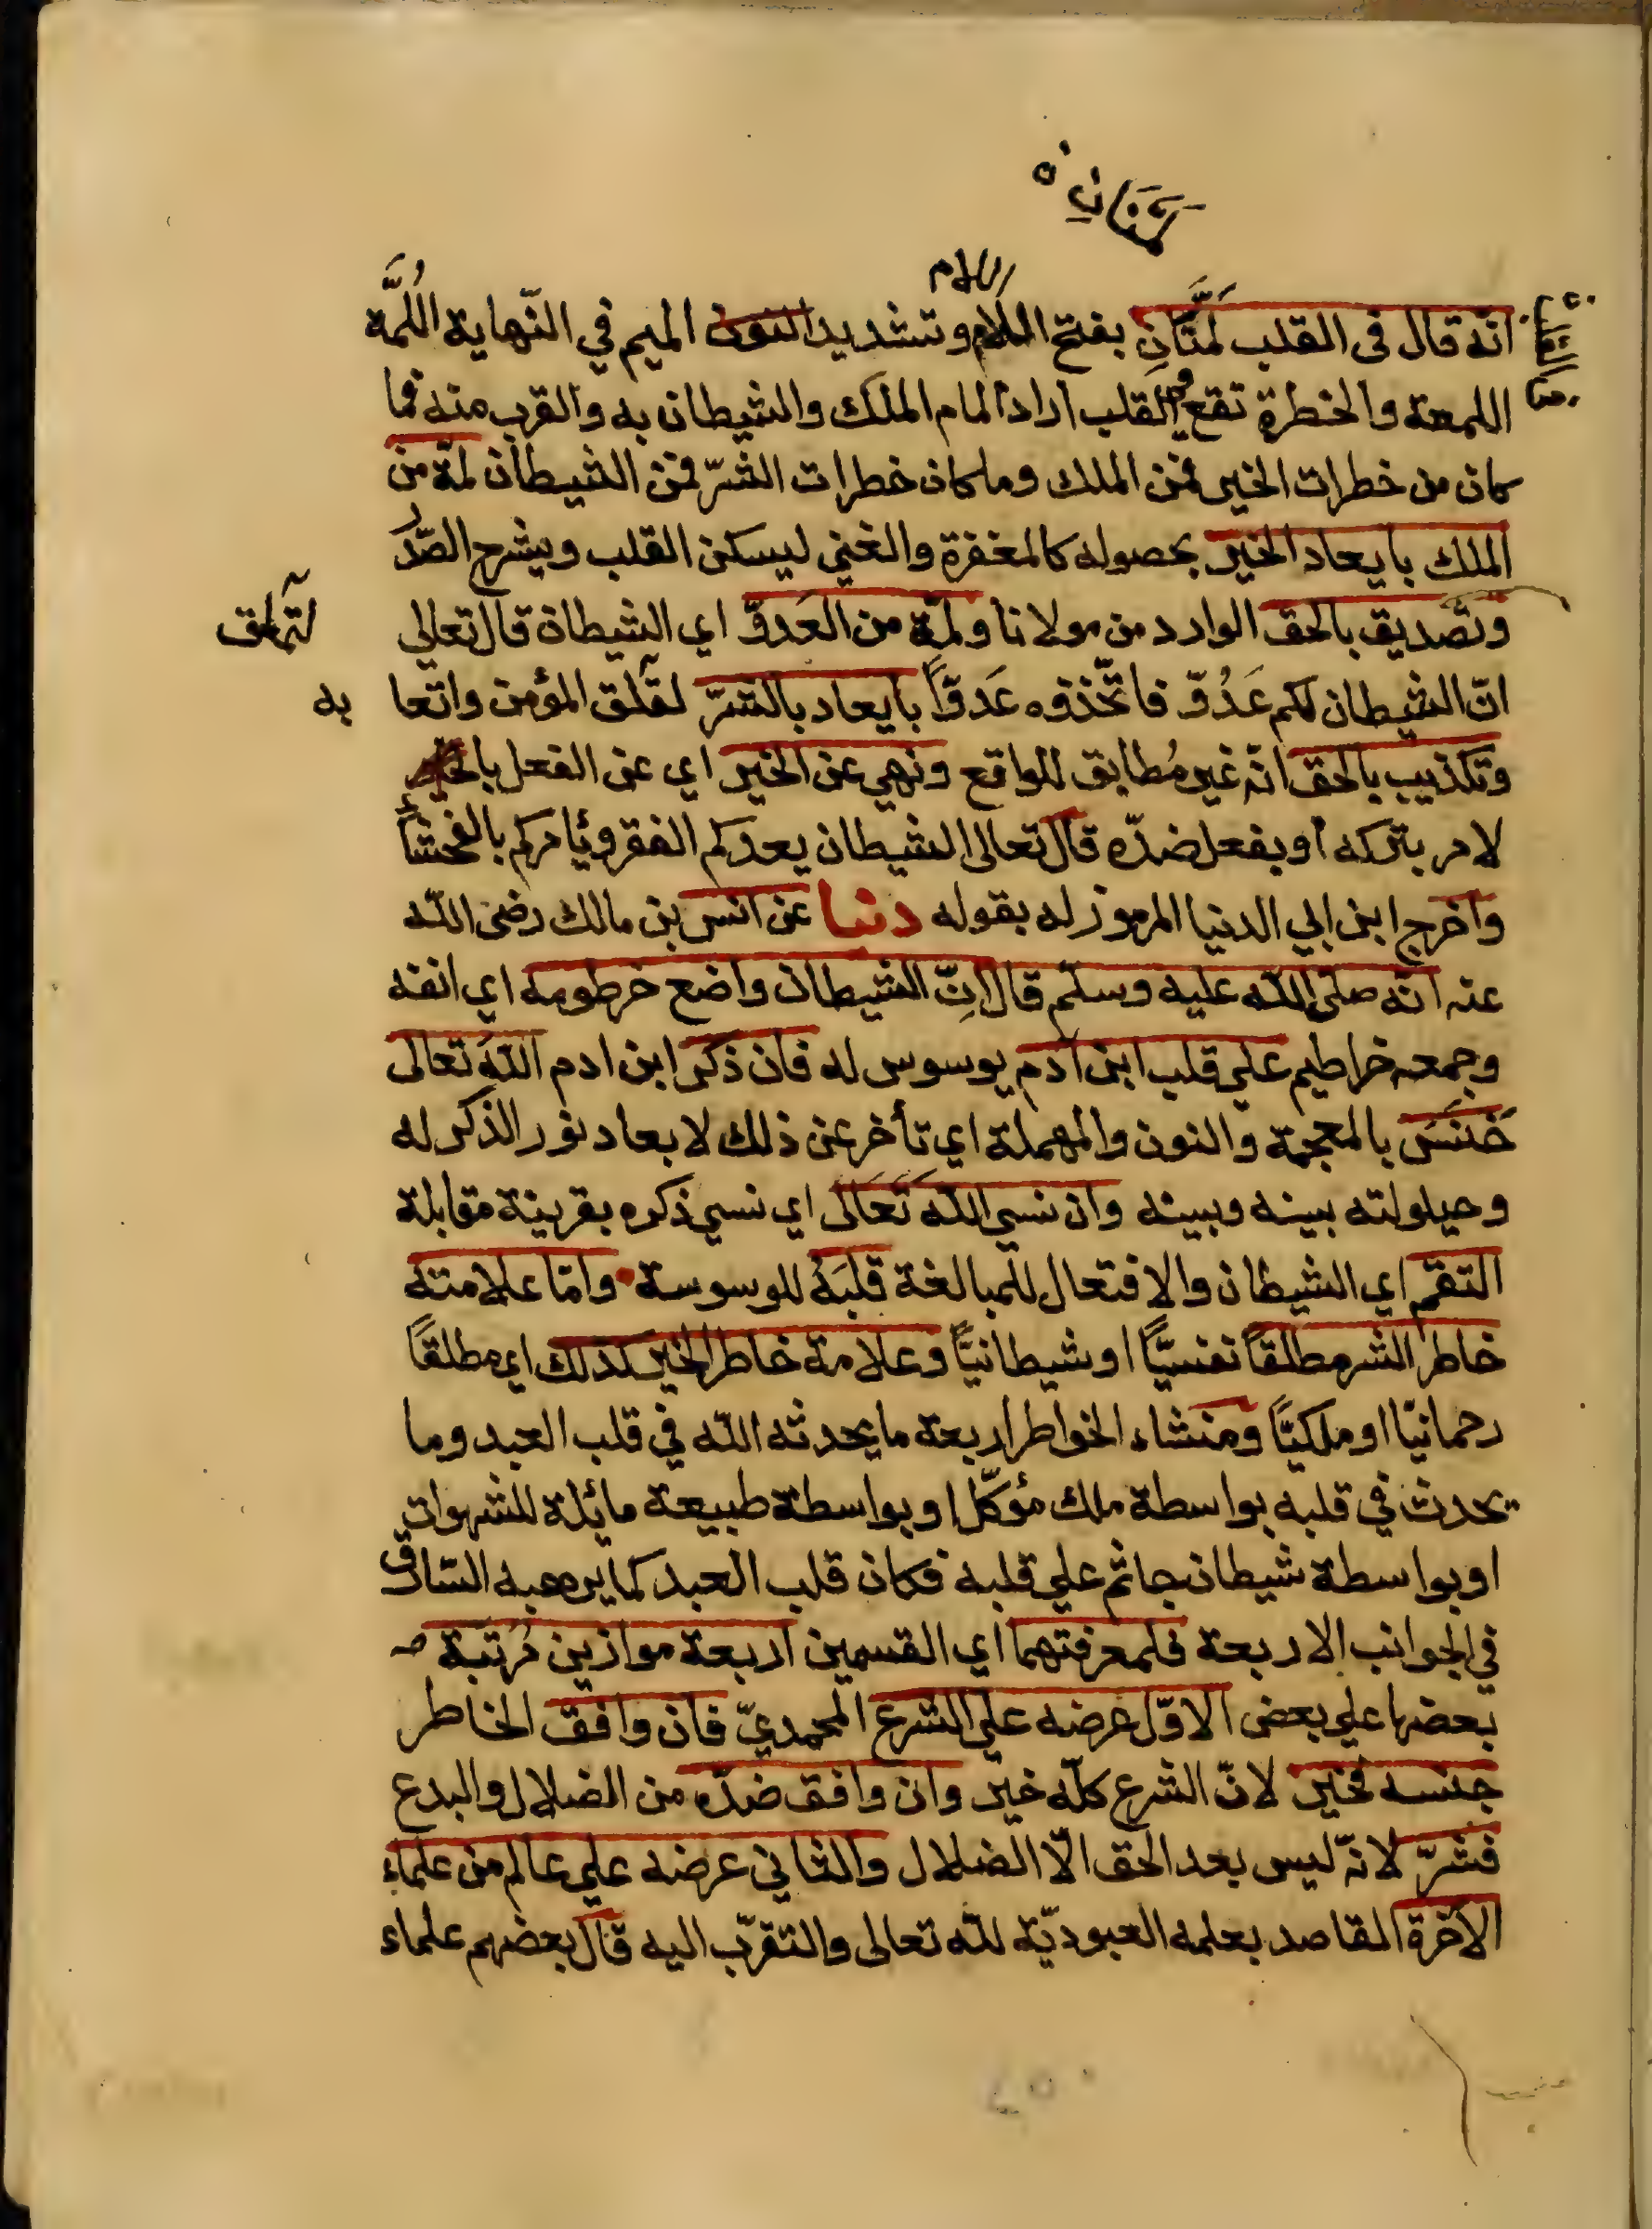 اللام
انّه قال فى القلب لَمَّتَانِ بفتح اللام وتشديد النون الميم في النّهاية اللُمَّة
اللمعة والخطرة تقع في القلب اراد المام الملك والشيطان به والقرب منه فما
كان من خطرات الخير فمن الملك وما كان خطرات الشرّ فمن الشيطان لمّة من
الملك بايعاد الخير بحصوله كالمغفرة والغني ليسكن القلب ويشرح الصّدر
وتصديق بالحق الوارد من مولانا ولمّة من العَدوّ اي الشيطان قال تعالي
انّ الشيطان لكم عَدُوّ فاتّخذوه عَدوّاً بايعاد بالشرّ لقلق المؤمن واتعا
به
وتكذيب بالحق انه غير مُطابق للواقع ونهي عن الخير اي عن الفعل بالخير
لامر بتركه أو بفعل ضدّه قال تعالى الشيطان يعدكم الفقر ويأمركم بالفحشاء
واخرج ابن ابي الدنيا المرموز له بقوله دنيا عن انس بن مالك رضى اللّه
عنه انّه صلى اللّه عليه وسلّم قال انّ الشيطان واضع خرطومه اي انفه
وجمعه خراطيم علي قلب ابن آدم يوسوس له فان ذكر ابن ادم اللّهَ تعالى
خَنَسَ بالمعجمة والنون والمهملة اي تأخر عن ذلك لابعاد نور الذكر له
وحيلولته بينه وبينه وان نسي اللّه تَعَالَى اي نسي ذكره بقرينة مقابلة
التقم اي الشيطان والافتعال للمبالغة قلبَه للوسوسة وامّا علامته
خاطر الشر مطلقاً نفسيّاً او شيطانيّاً وعلامة خاطر الخير كذلك اي مطلقاً
رحمانيّا او ملكيّاً ومنشاء الخواطر اربعة ما يحدثه اللّه في قلب العبد وما
يحدث في قلبه بواسطة ملك مؤكّل او بواسطة طبيعة مائلة للشهوات
او بواسطة شيطان جاثم علي قلبه فكان قلب العبد كما يرهبه السّارق
في الجوانب الاربعة فلمعرفتهما اي القسمين اربعة موازين مُرتبَة
بعضها علي بعض الاوّل عرضه علي الشرع المحمديّ فان وافق الخاطر
جنسه فخير لانّ الشرع كلّه خير وان وافق ضدّه من الضلال والبدع
فشرّ لانّه ليس بعد الحق الّا الضلال والثاني عرضه علي عالم من علماء
الآخرة القاصد بعلمه العبوديّة للّه تعالى والتقرّب اليه قال بعضهم علماء